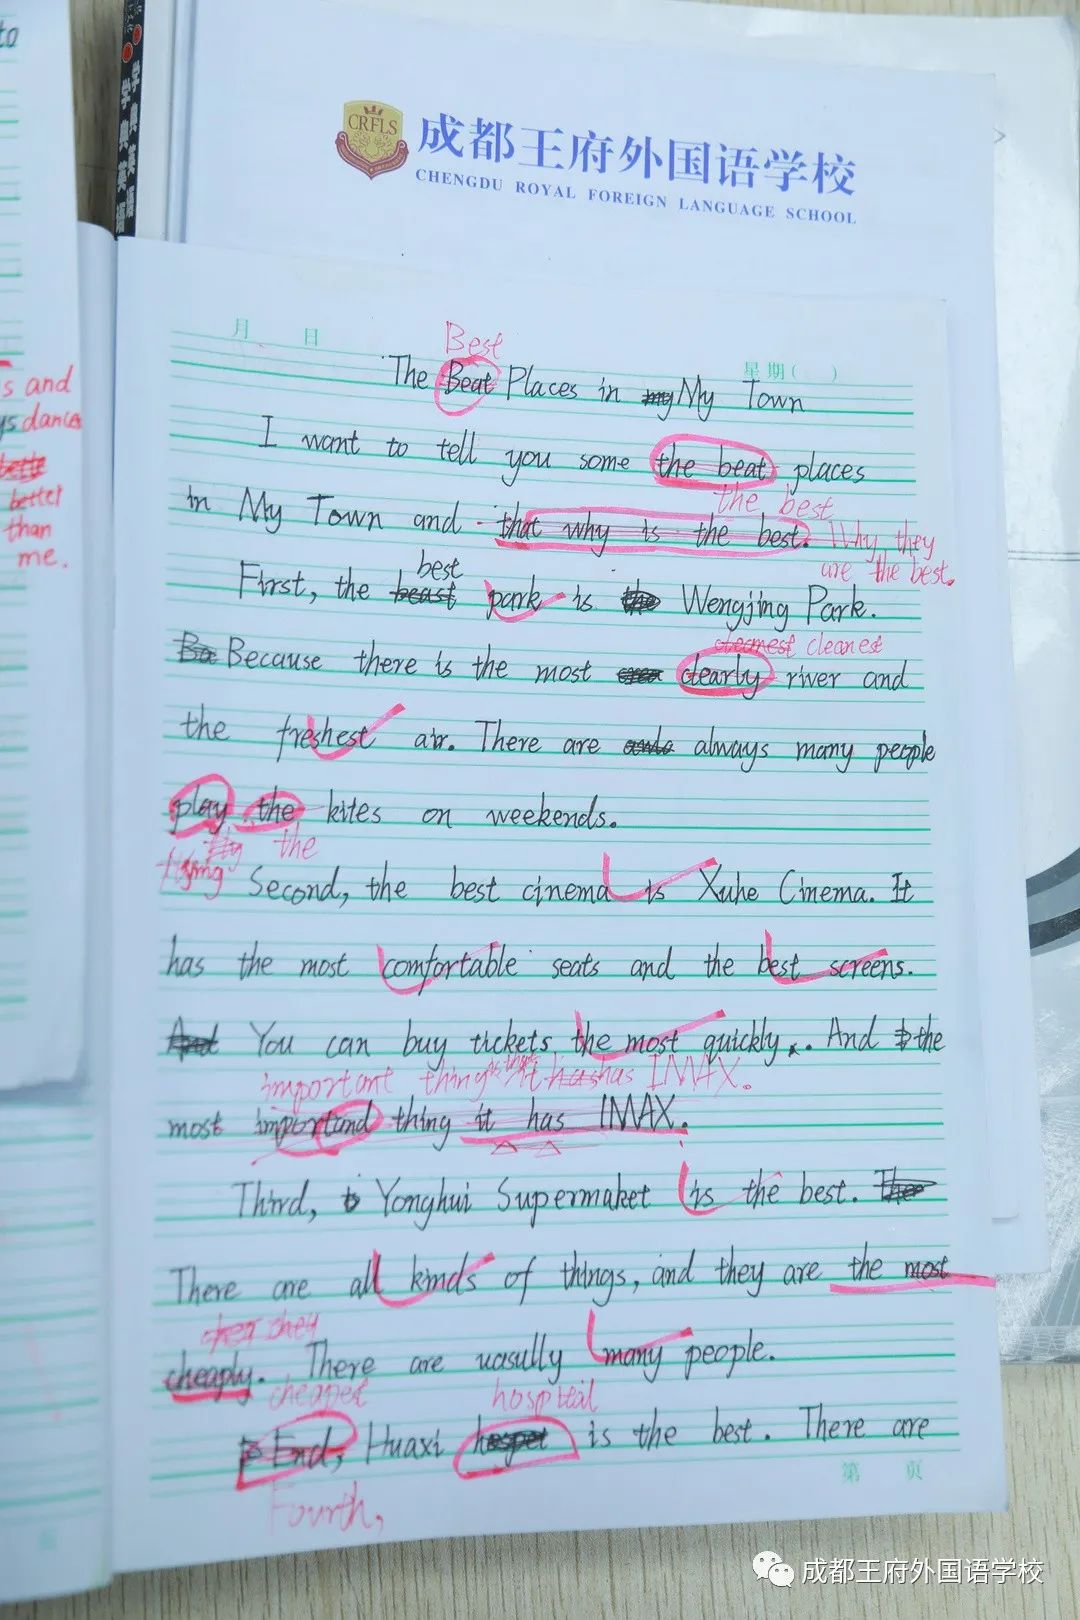 to
学典英语
学典英语
CRFLS
成都王府外国语学校
CHENGDU ROYAL FOREIGN LANGUAGE SCHOOL
月 日
星期( )
Best
The Beat Places in my My Town
I want to tell you some the beat places
the best
in My Town and that why is the best. Why they
are the best.
best
First, the beast park is the Wengjing Park.
cleanest cleanest
Ba Because there is the most clearly river and
the freshest air. There are always many people
play the kites on weekends.
fly the
flying
Second, the best cinema is Xuhe Cinema. It
has the most comfortable seats and the best screens.
And You can buy tickets the most quickly. And the
important thing is that it has has IMAX.
most importand thing it has IMAX.
Third, Yonghui Supermaket is the best. The
There are all kinds of things, and they are the most
cheaply. There are uasully many people.
cheapest
hospital
End, Huaxi is the best. There are
Fourth,
第 页
s and
ys dances
better
than
me.
成都王府外国语学校